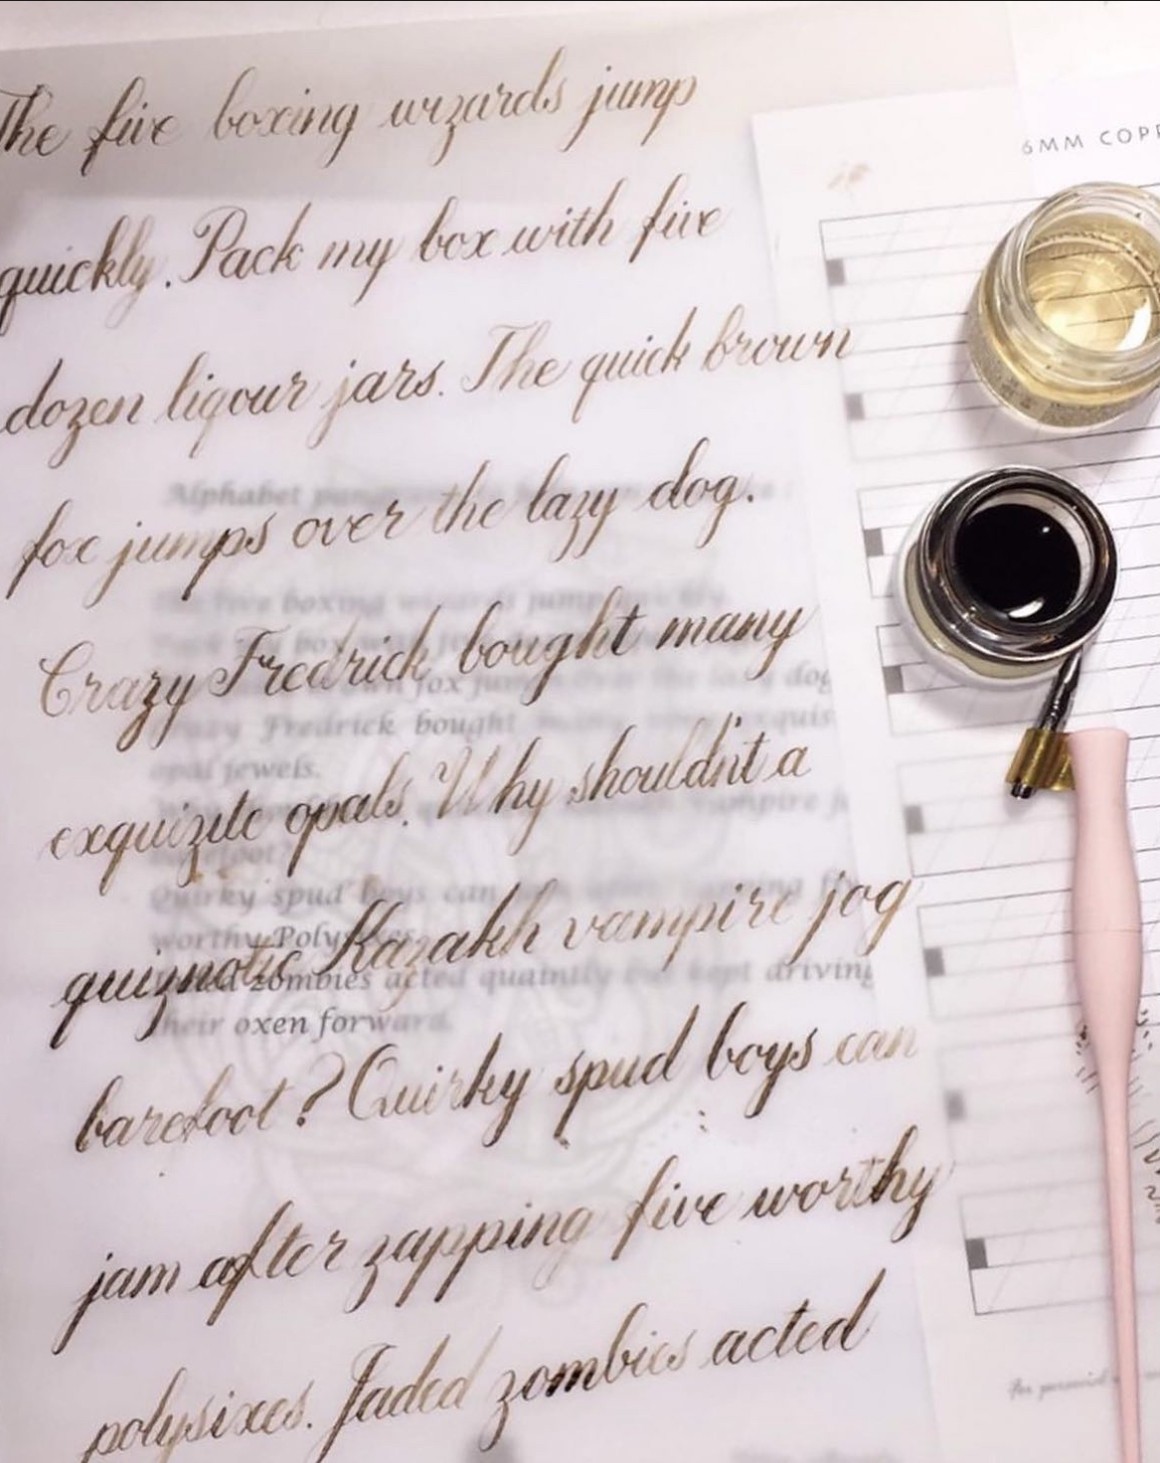 The five boxing wizards jump
quickly. Pack my box with five
dozen liqour jars. The quick brown
fox jumps over the lazy dog.
Crazy Fredrick bought many
exquizite opals. Why shouldn't a
quiznotic Kazakh vampire jog
barefoot? Quirky spud boys can
jam after zapping five worthy
polysixes. Jaded zombies acted
6MM COPP
Alphabet
The five boxing wizards jump
box
fox
the lazy dog
Crazy Fredrick bought
opal jewels.
vampire
barefoot?
Quirky spud boys can
worthy Polysixes.
zombies acted quaintly but kept driving
their oxen forward.